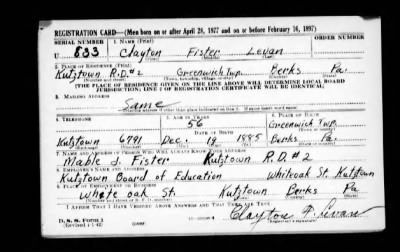 REGISTRATION CARD—(Men born on or after April 28, 1877 and on or before February 16, 1897)
SERIAL NUMBER 1. NAME (Print) ORDER NUMBER
U 833 Clayton Fister Levan
2. PLACE OF RESIDENCE (Print)
Kutztown R.D.#2 Greenwich Twp. Berks Pa.
[THE PLACE OF RESIDENCE GIVEN ON THE LINE ABOVE WILL DETERMINE LOCAL BOARD
JURISDICTION; LINE 2 OF REGISTRATION CERTIFICATE WILL BE IDENTICAL]
3. MAILING ADDRESS
Same
4. TELEPHONE 5. AGE IN YEARS 6. PLACE OF BIRTH
56 Greenwich Twp.
DATE OF BIRTH
Kutztown 6791 Dec. 19 1885 Berks Pa.
7. NAME AND ADDRESS OF PERSON WHO WILL ALWAYS KNOW YOUR ADDRESS
Mable J. Fister Kutztown R.D.#2
8. EMPLOYER'S NAME AND ADDRESS
Kutztown Board of Education Whiteoak St. Kutztown
9. PLACE OF EMPLOYMENT OR BUSINESS
White oak St. Kutztown Berks Pa.
I AFFIRM THAT I HAVE VERIFIED ABOVE ANSWERS AND THAT THEY ARE TRUE.
D. S. S. Form 1
Clayton F. Levan